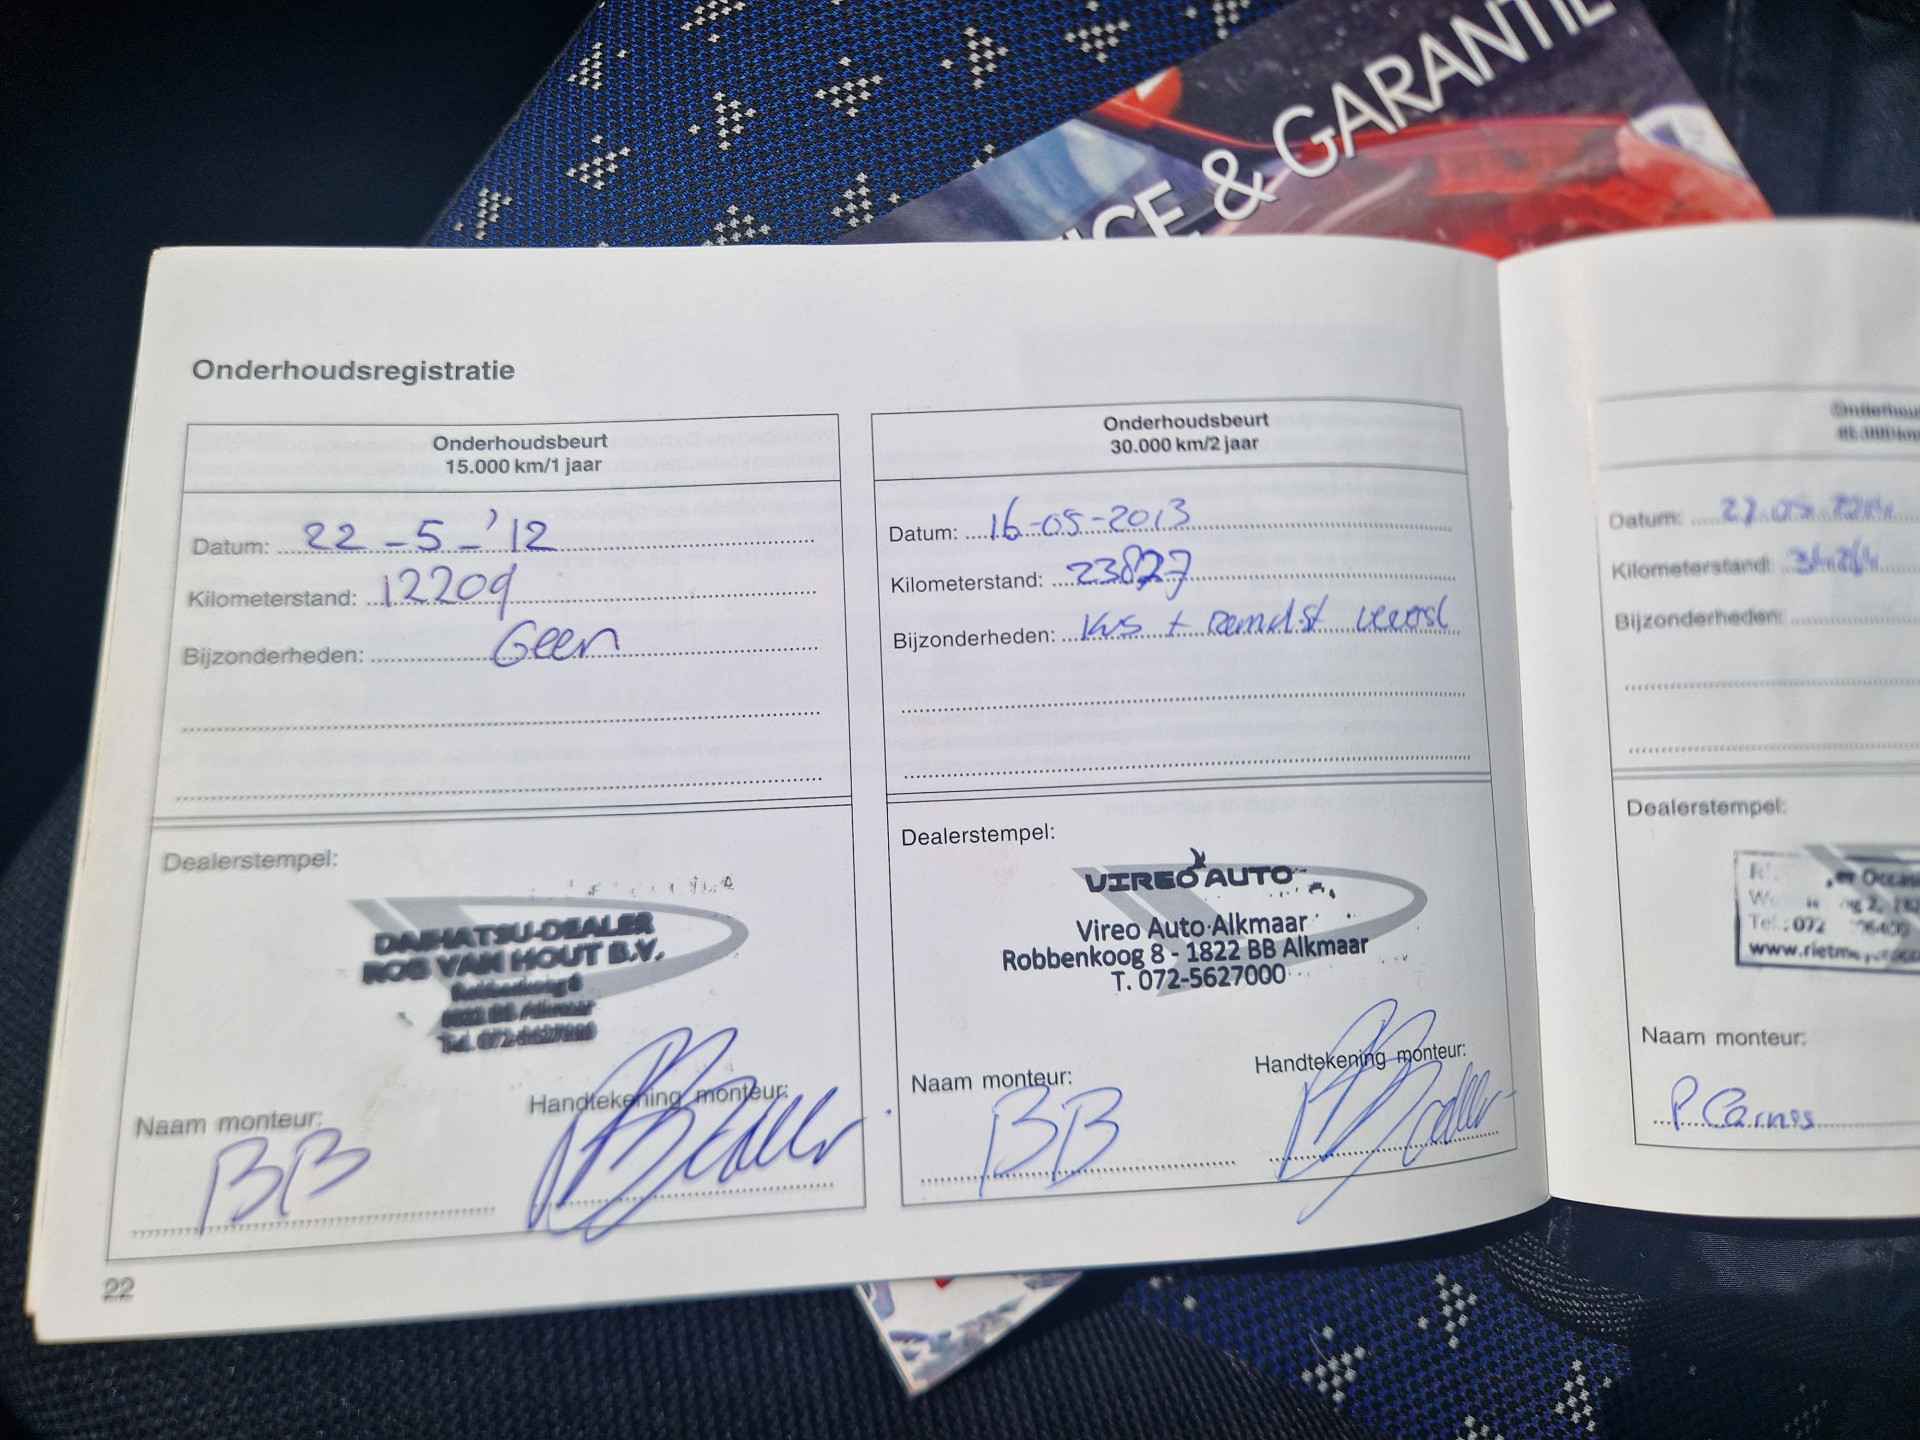 & GARANTIE
Onderhoudsregistratie
Onderhoudsbeurt
15.000 km/1 jaar
Datum: 22-5-'12
Kilometerstand: 12209
Bijzonderheden: Geen
Dealerstempel:
DAIHATSU-DEALER
ROB VAN HOUT B.V.
Robbenkoog 8
1822 BB Alkmaar
Tel. 072-5627000
Naam monteur:
Handtekening monteur:
BB
22
Onderhoudsbeurt
30.000 km/2 jaar
Datum: 16-05-2013
Kilometerstand: 23827
Bijzonderheden: KVS + remvlst ververst
Dealerstempel:
VIREO AUTO
Vireo Auto Alkmaar
Robbenkoog 8 - 1822 BB Alkmaar
T. 072-5627000
Naam monteur:
Handtekening monteur:
BB
Datum:
Kilometerstand:
Bijzonderheden:
Dealerstempel:
Tel.: 072
Naam monteur: